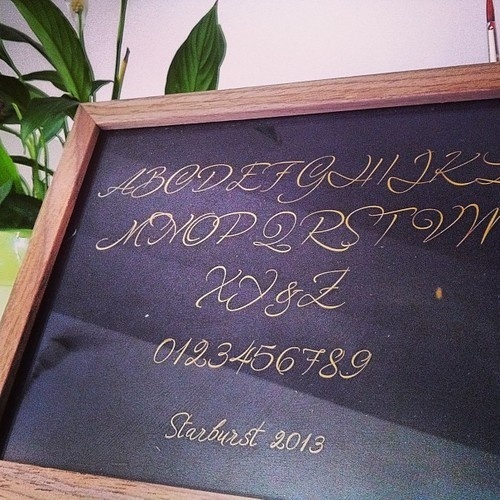 ABCDEFGHIJKL
MNOPQRSTUVW
XY&Z
0123456789
Starburst 2013